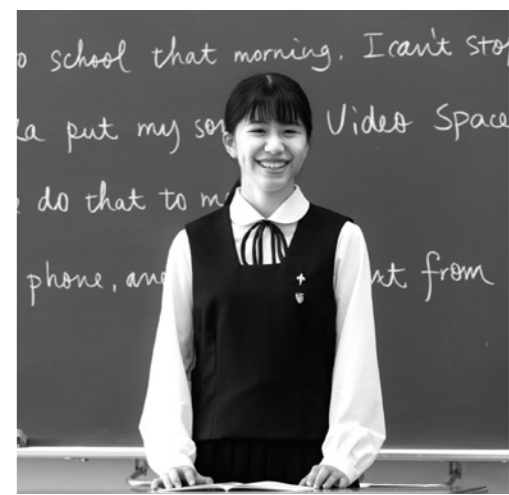 o school that morning. I can't stop
put my so Video Space
do that to m
phone, an t from